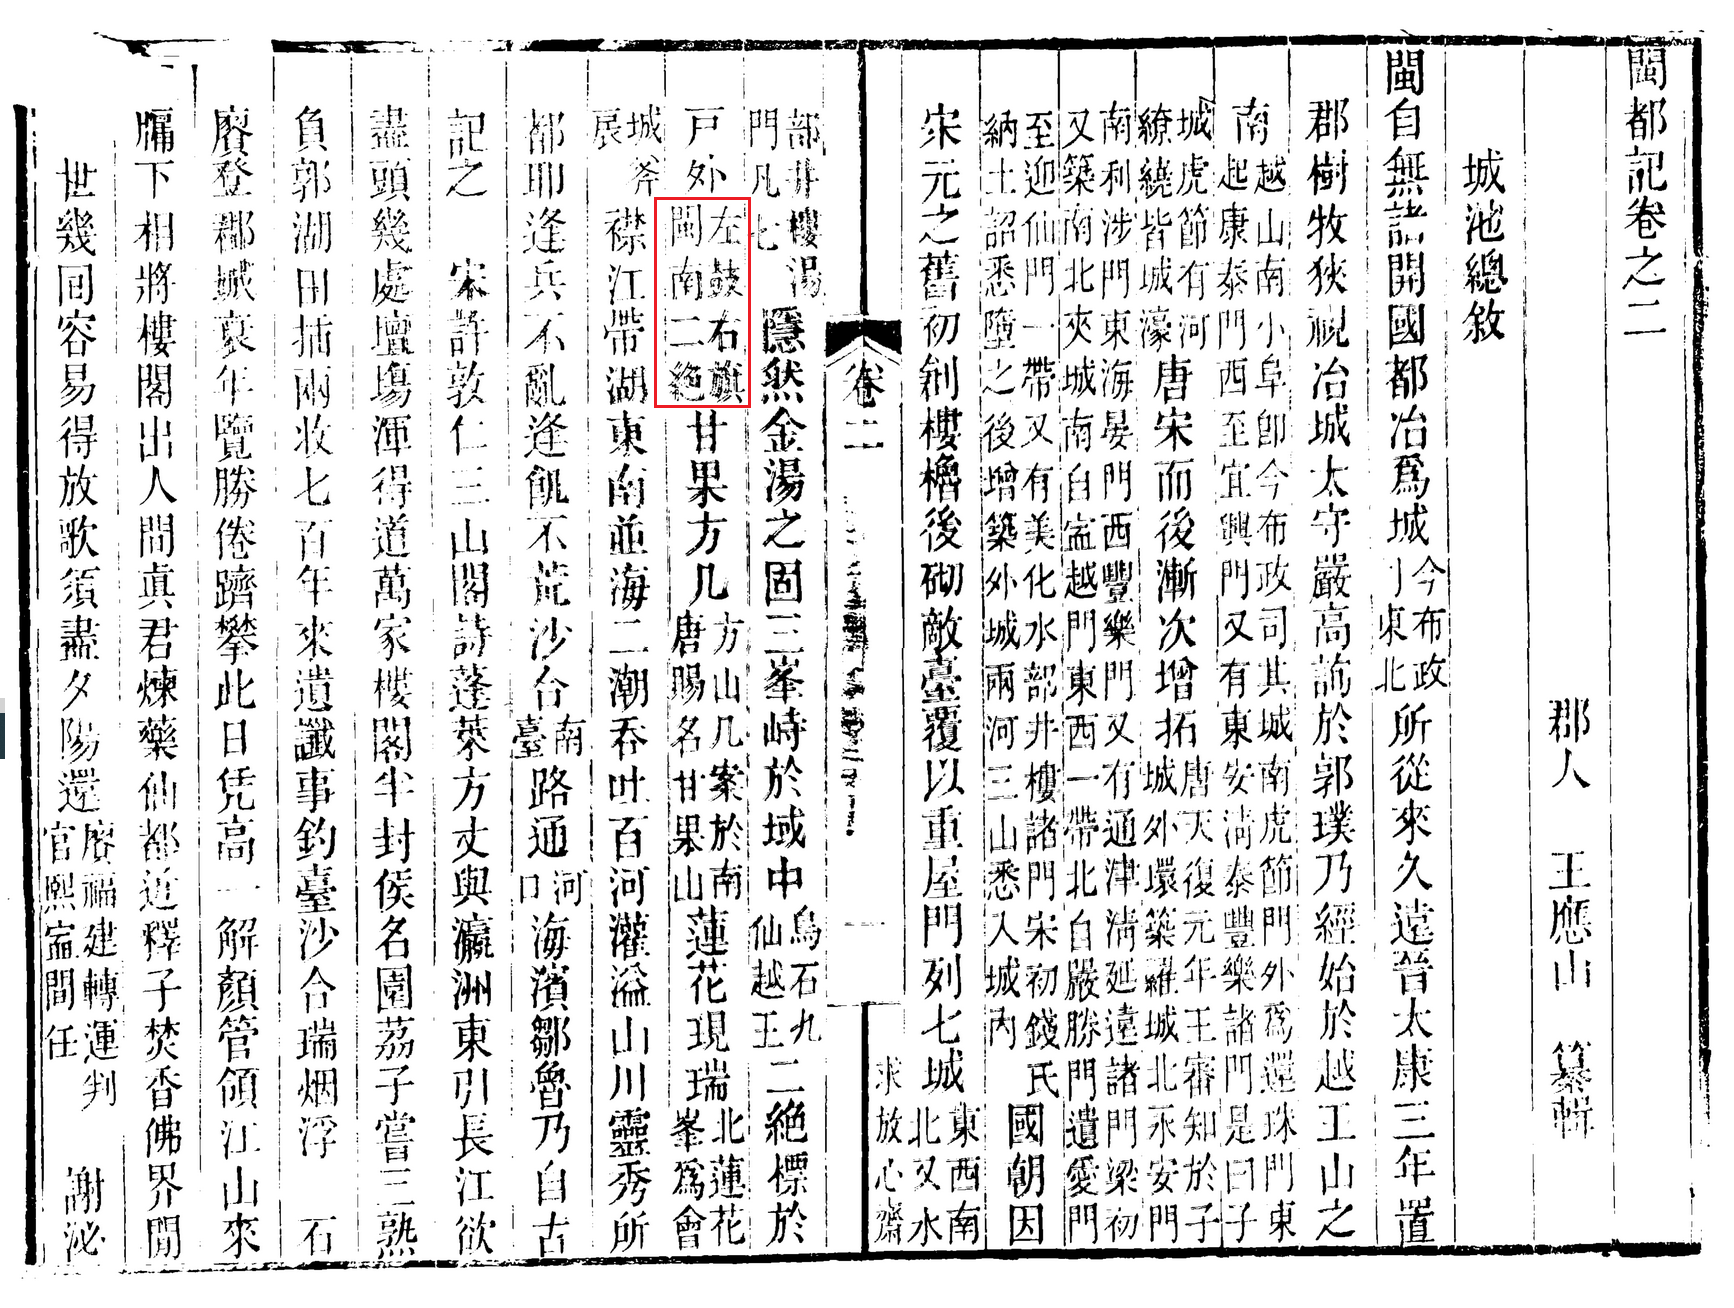 閩都記卷之二
郡人 王應山 纂輯
城池總敘
閩自無諸開國都冶爲城今布政東北所從來久遠晉太康三年置
郡樹牧狹視冶城太守嚴高諮於郭璞乃經始於越王山之
南越山南小阜卽今布政司其城南虎節門外爲還珠門東起康泰門西至宜興門又有東安淸泰豐樂諸門是曰子
城虎節有河繚繞皆城濠唐宋而後漸次增拓唐天復元年王審知於子城外環築羅城北永安門
南利涉門東海晏門西豐樂門又有通津淸延遠諸門梁初又築南北夾城南自寍越門東西一帶北自嚴勝門遺愛門
至迎仙門一帶又有美化水部井樓諸門宋初錢氏納土詔悉墮之後增築外城兩河三山悉入城內國朝因
宋元之舊初剏樓櫓後砌敵臺覆以重屋門列七城東西南北又水
求放心齋
卷二 一
部井樓湯門凡七隱然金湯之固三峯峙於域中烏石九仙越王二絕標於
戸外左鼓右旗閩南二絶甘果方几方山几案於南唐賜名甘果山蓮花現瑞北蓮花峯爲會
城斧扆襟江帶湖東南並海二潮吞吐百河灌溢山川靈秀所
都耶逢兵不亂逢飢不荒沙合南臺路通河口海濱鄒魯乃自古
記之 宋許敦仁三山閣詩蓬萊方丈與瀛洲東引長江欲
盡頭幾處壇塲渾得道萬家樓閣半封侯名園荔子嘗三熟
負郭湖田插兩收七百年來遺讖事釣臺沙合瑞烟浮 石
賡登郡城衰年覽勝倦躋攀此日凭高一解顏管領江山來
牖下相將樓閣出人間眞君煉藥仙都近釋子焚香佛界閒
世幾回容易得放歌須盡夕陽還賡福建轉運判官熙寍間任 謝泌